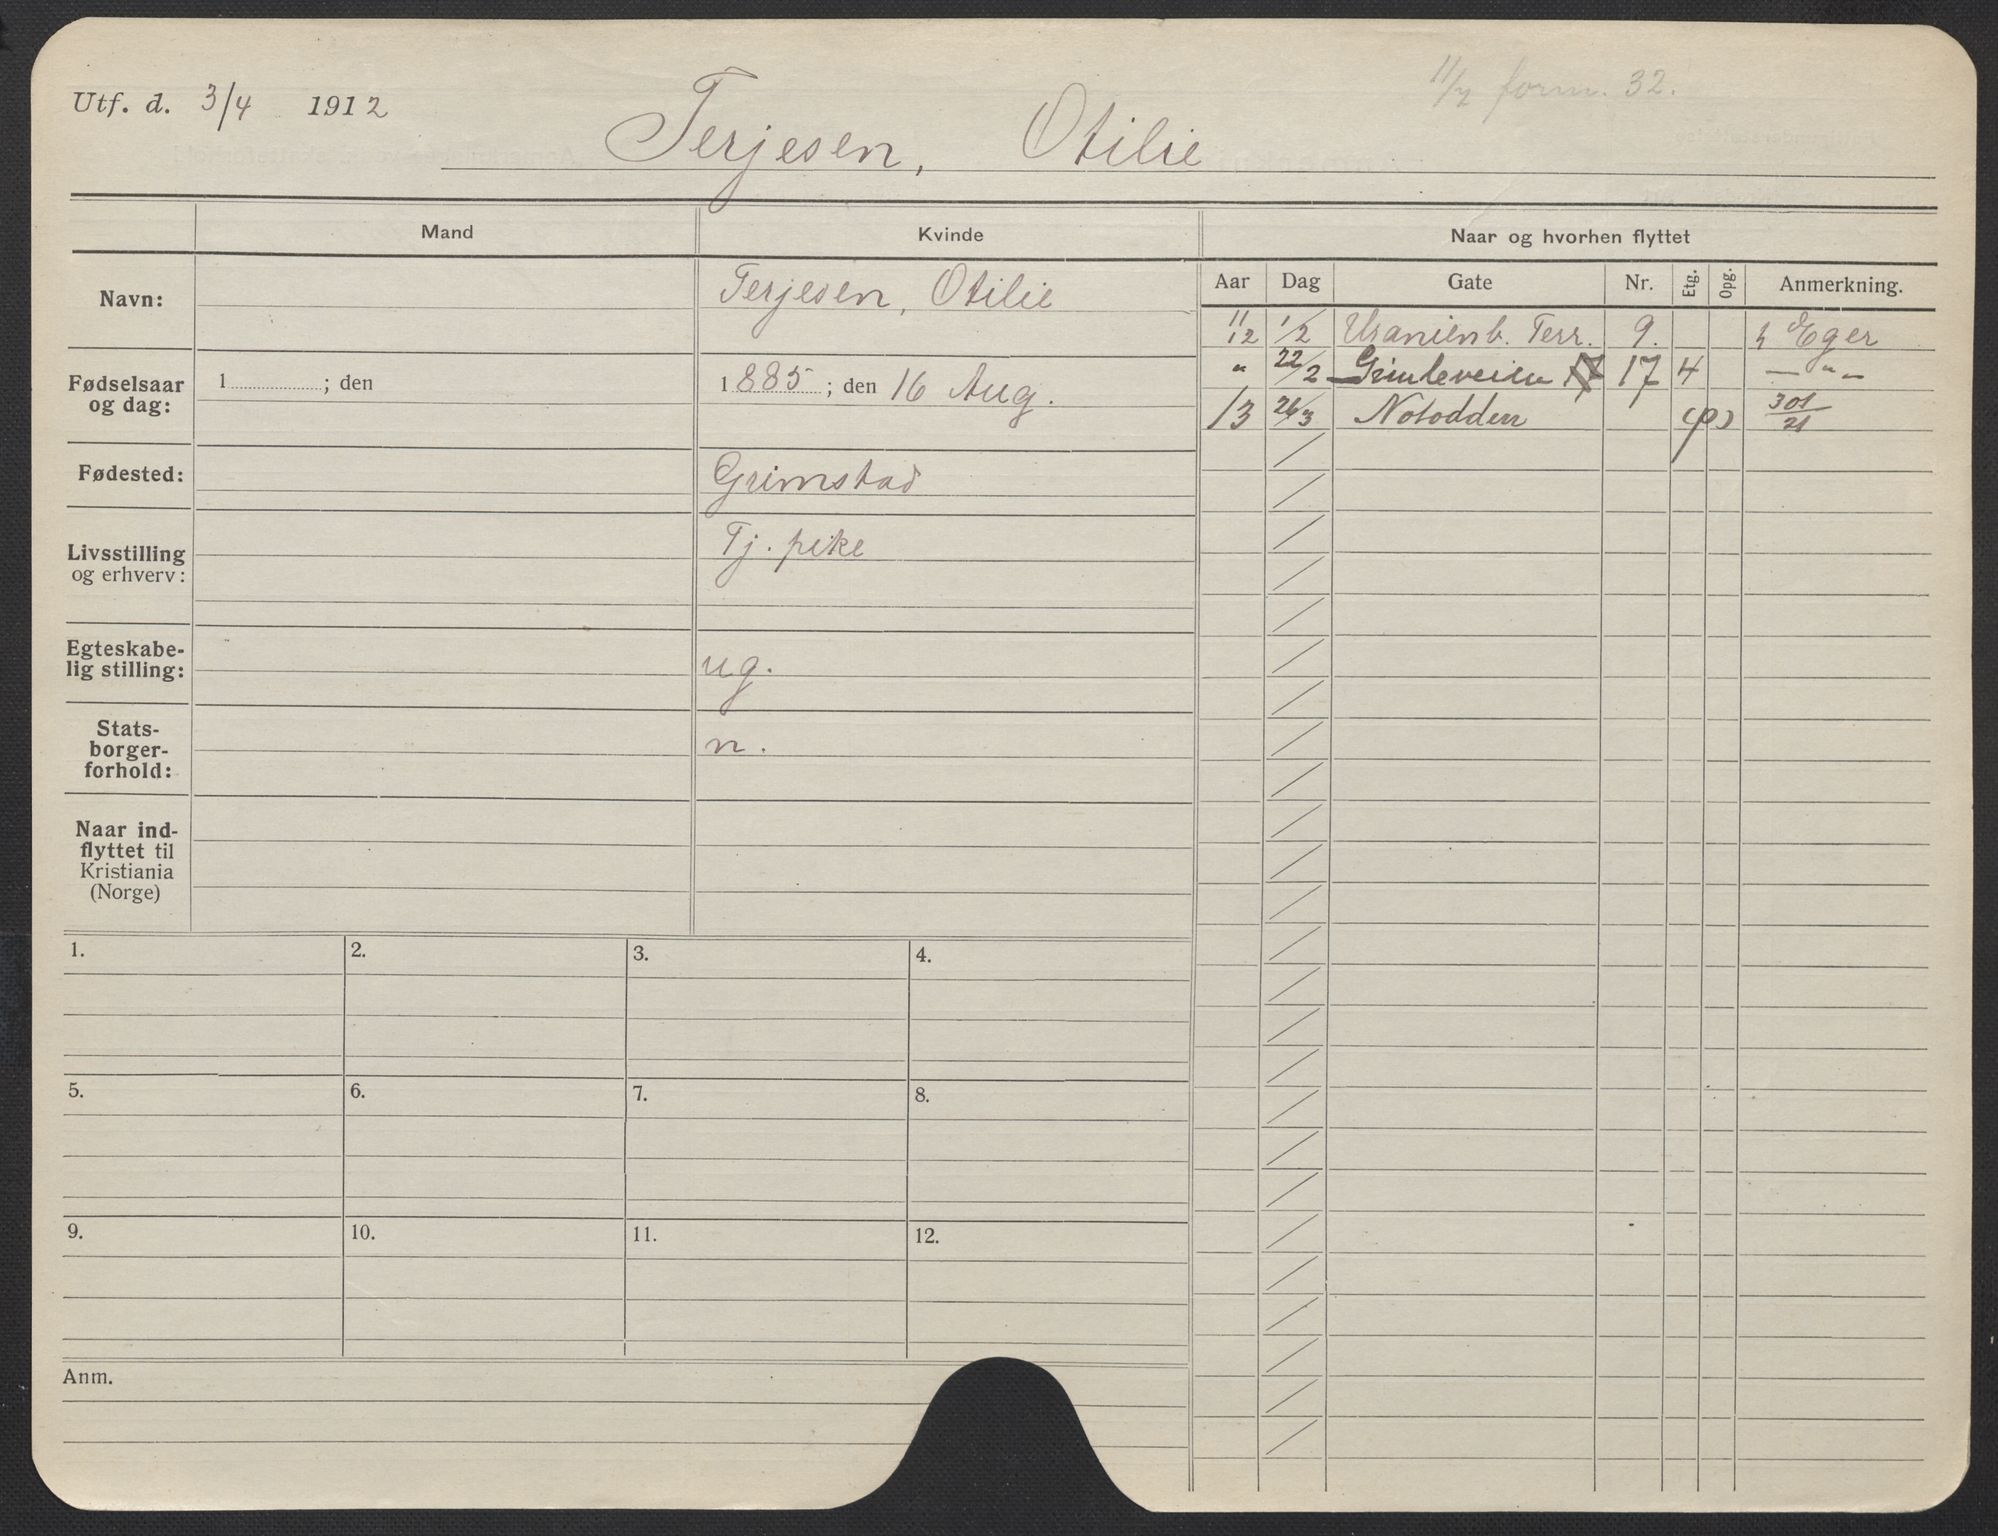 Utf. d. 3/4 1912
11/7 form. 32.
Terjesen, Otilie
Mand Kvinde Naar og hvorhen flyttet
Navn: Terjesen, Otilie
Aar Dag Gate Nr. Etg. Opg. Anmerkning.
11/12 1/2 Uranienb. Terr. 9. h Eger
" 22/2 17 4 — " —
13 26/3 Notodden (p) 301/21
Fødselsaar
og dag:
1 ; den
1885 ; den 16 Aug.
Fødested: Grimstad
Livsstilling
og erhverv:
Tj. pike
Egteskabe-
lig stilling:
ug.
Stats-
borger-
forhold:
n.
Naar ind-
flyttet til
Kristiania
(Norge)
1. 2. 3. 4.
5. 6. 7. 8.
9. 10. 11. 12.
Anm.